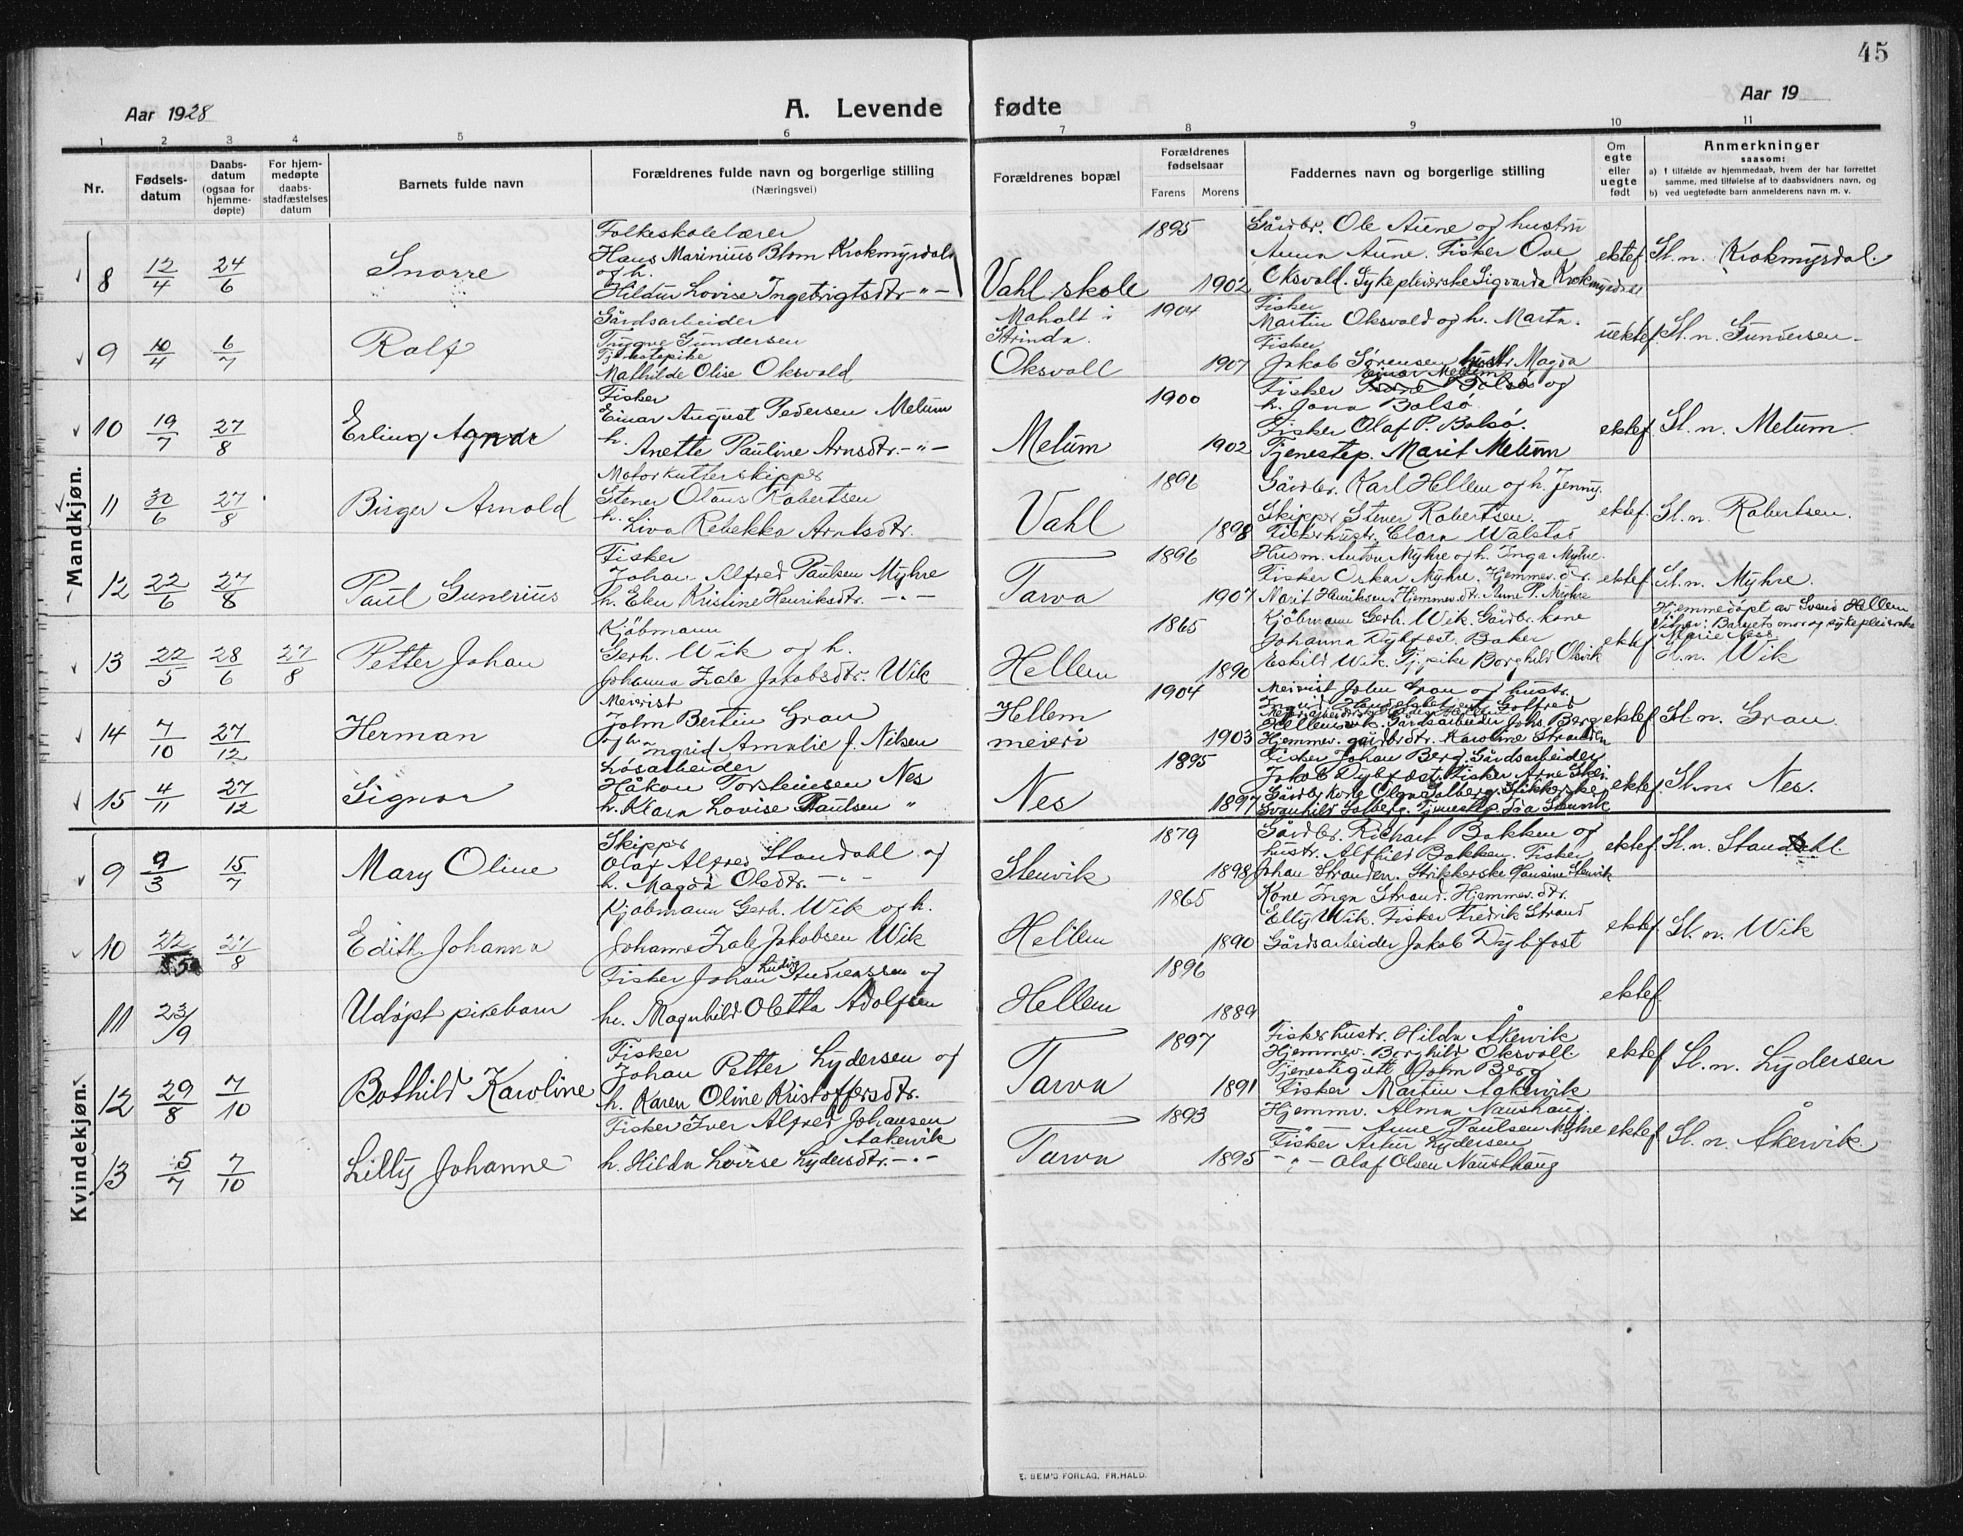 45
Aar 1928
A. Levende fødte
Aar 19
1 2 3 4 5 6 7 8 9 10 11
Nr.
Fødsels-
datum
Daabs-
datum
(ogsaa for
hjemme-
døpte)
For hjem-
medøpte
daabs-
stadfæstelses
datum
Barnets fulde navn
Forældrenes fulde navn og borgerlige stilling
(Næringsvei)
Forældrenes bopæl
Forældrenes
fødselsaar
Farens Morens
Faddernes navn og borgerlige stilling
Om
egte
eller
uegte
født
Anmerkninger
saasom:
a) I tilfælde av hjemmedaab, hvem der har forrettet
samme, med tilføielse af to daabsvidners navn, og
b) ved uegtefødte barn anmelderens navn m. v.
Mandkjøn.
8 12/4 24/6 Snorre
Folkeskolelærer
Hans Marinius Blom Krokmyrdal
og h.
Hildur Lovise Ingebrigtsdtr. -"-
Vahl skole
1895
1902
Gårdbr. Ole Aune og hustru
Anna Aune. Fisker Ove
Oksvold. Sykepleierske Sigvarda Krokmyrdal
ektef. Sl. n. Krokmyrdal.
9 10/4 6/7 Rolf
Gårdsarbeider
Trygve Gundersen
Mathilde Olise Oksvold
Maholt i
Strinda.
Oksvoll
1904
1907
Fisker
Martin Oksvold og h. Marta.
Fisker
Jakob Sørensen hustr. Magda
uektef. Sl. n. Gundersen
10 19/7 27/8 Erling Agnar
Fisker
Einar August Pedersen Melum
h. Anette Pauline Arnsdtr. -"-
Melum
1900
1902
Einar Melum
Fisker og
h. Jona Bolsø.
Fisker Olaf P. Bolsø.
Tjenestep. Marit Melum
ektef. Sl. n. Melum.
11 30/6 27/8 Birger Arnold
Motorkutterskipper
Stener Olaus Robertsen
h. Liva Rebekka Arntsdtr.
Vahl
1896
1898
Gårdbr. Karl Hellem og h. Jenny.
Skipper Stener Robertsen.
Fiskerhustr. Clara Walstad
ektef. Sl. n. Robertsen.
12 22/6 27/8 Paul Gunerius
Fisker
Johan Alfred Paulsen Myhre
h. Elen Kristine Henriksdtr. -"-
Tarva
1896
1907
Husm. Anton Myhre og h. Inga Myhre.
Fisker Oskar Myhre. Hjemmev. dtr.
Marit Henriksen. Hjemmev. dtr. Anne P. Myhre
ektef. Sl. n. Myhre.
13 22/5 28/6 27/8 Petter Johan
Kjøbmann
Gerh. Wik og h.
Johanna Zale Jakobsdtr. Wik
Hellem
1865
1890
Kjøbmann Gerh. Wik. Gårdbr. kone
Johanna Dybfost. Baker
Eskild Wik. Tj.pike Borghild Oksvik
ektef.
Hjemmedøpt av Svend Hellem
Vitner: Barnets mor og sykepleierske
Marie Næss
Sl. n. Wik
14 7/10 27/12 Herman
Meierist
John Bertin Grau
og h.
Ingrid Amalie f. Nilsen
Hellem
meieri
1904
1903
Meierist John Grau og hustr.
Gårdsarbeider Johs. Berg
Hjemmev. gårdbr.dtr. Karoline Stranden
ektef. Sl. n. Grau.
15 4/11 27/12 Signar
Løsarbeider
Håkon Torsteinsen Nes
h. Klara Lovise Paulsen "
Nes
1895
1897
Fisker Johan Berg. Gårdsarbeider
Jakob Dybfost. Fisker Arne
Gårdbr. kone Olga Solberg.
Svanhild Solberg. Tjenestep.
ektef. Sl. n. Nes.
Kvindekjøn.
9 9/3 15/7 Mary Oline
Skipper
Olaf Alfred Standahl og
h. Magda Olsdtr. -"-
Stenvik
1879
1898
Gårdbr. Richart Bakken og
hustr. Alfhild Bakken. Fisker
Johan Stranden. Strikkerske Hansine Stenvik
ektef. Sl. n. Standahl.
10 22/5 27/8 Edith Johanna
Kjøbmann Gerh. Wik og h.
Johanne Zale Jakobsen Wik
Hellem
1865
1890
Kone Inga Strand. Hjemmev. dtr.
Elly Wik. Fisker Fredrik Strand
Gårdsarbeider Jakob Dybfost
ektef. Sl. n. Wik
11 23/9 Udøpt pikebarn
Fisker Johan Ludvig Andreassen og
h. Magnhild Oletta Adolfsen
Hellem
1896
1889
ektef.
12 29/8 7/10 Bothild Karoline
Fisker
Johan Petter Lydersen og
h. Karen Oline Kristoffersdtr.
Tarva
1897
1891
Fiskerhustr. Hilda Åkervik
Hjemmev. Borghild Oksvoll.
Tjenestegutt John Berg
Fisker Martin Aakervik
ektef. Sl. n. Lydersen
13 5/7 7/10 Lilly Johanne
Fisker Iver Alfred Johansen
Aakervik
h. Hilda Lovise Lydersdtr. -"-
Tarva
1893
1895
Hjemmv. Alma Naushaug.
-"- Anne Paulsen Myhre
Fisker Artur Lydersen
-"- Olaf Olsen Nausthaug
ektef. Sl. n. Åkervik
E. SEM'S FORLAG, FR.HALD.